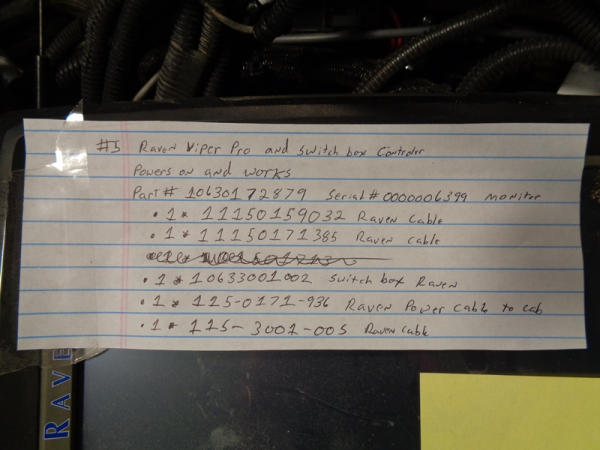 #5 Raven Viper Pro and switch box Controler
Powers on and works
Part# 10630172879 Serial# 0000006399 monitor
• 1* 11150159032 Raven Cable
• 1* 11150171385 Raven cable
• 1* 10633001002 switch box Raven
• 1* 115-0171-936 Raven Power cable to cab
• 1* 115-3001-005 Raven cable
RAVE